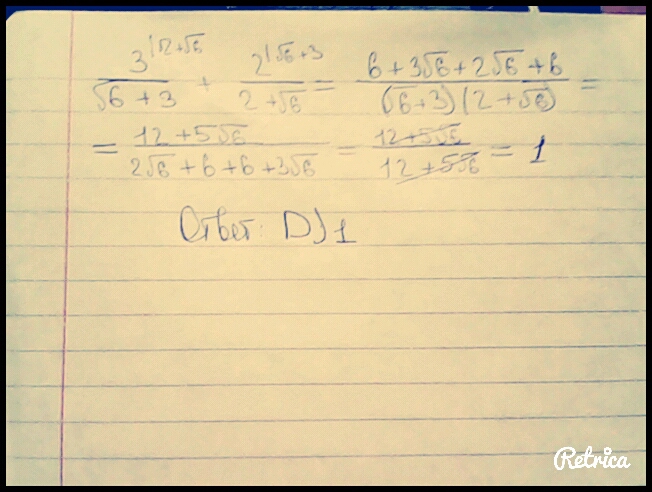 3^{|2+√6} / (√6 + 3) + 2^{|√6+3} / (2 + √6) = (6 + 3√6 + 2√6 + 6) / ((√6+3)(2+√6)) =
= (12 + 5√6) / (2√6 + 6 + 6 + 3√6) = (12 + 5√6) / (12 + 5√6) = 1
Ответ: D) 1
Retrica